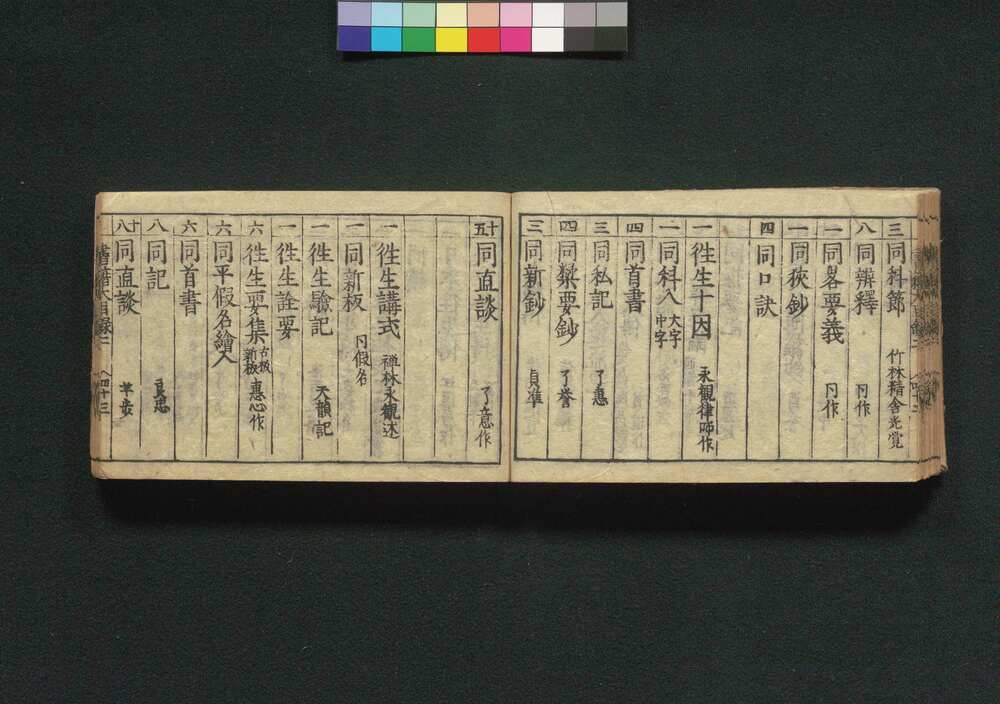 三 同科節 竹林精舎光覚
八 同辨釋 同作
一 同畧要義 同作
一 同狹鈔
四 同口訣
一 徃生十因 永観律師作
一 同科入 大字 中字
四 同首書
三 同私記 了惠
四 同糅要鈔 了誉
三 同新鈔 貞準
十五 同直談 了意作
一 徃生講式 禅林永観述
一 同新板 同假名
一 徃生驗記 天韻記
一 徃生詮要
六 徃生要集 古板 新板 惠心作
六 同平假名繪入
六 同首書
八 同記 良忠
十八 同直談
書籍大目録二 八四十三